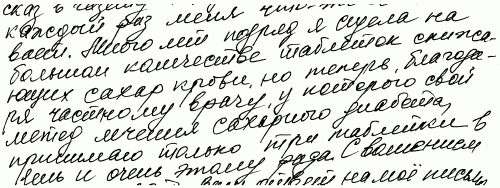 сказ
каждый раз меня
васи. Много лет подряд я сидела на
большом количестве таблеток снижа-
ющих сахар крови, но теперь, благода-
ря частному врачу, у которого свой
метод лечения сахарного диабета,
принимаю только три таблетки в
день и очень этому рада. С уважением
на моё письмо